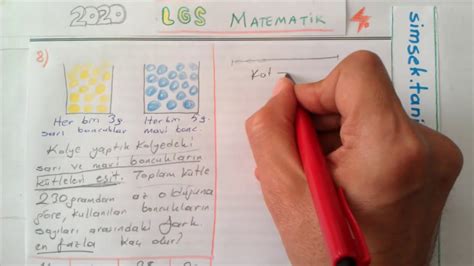 2020 LGS MATEMATİK
simsek.tani
8)
Her biri 3g.
sarı boncuklar
Her biri 5g.
mavi bonc.
Kolye yaptık Kolyedeki
sarı ve mavi boncukların
kütleleri eşit. Toplam kütle
230 gramdan az olduğuna
göre, kullanılan boncukların
sayıları arasındaki fark
en fazla kaç olur?
Kol